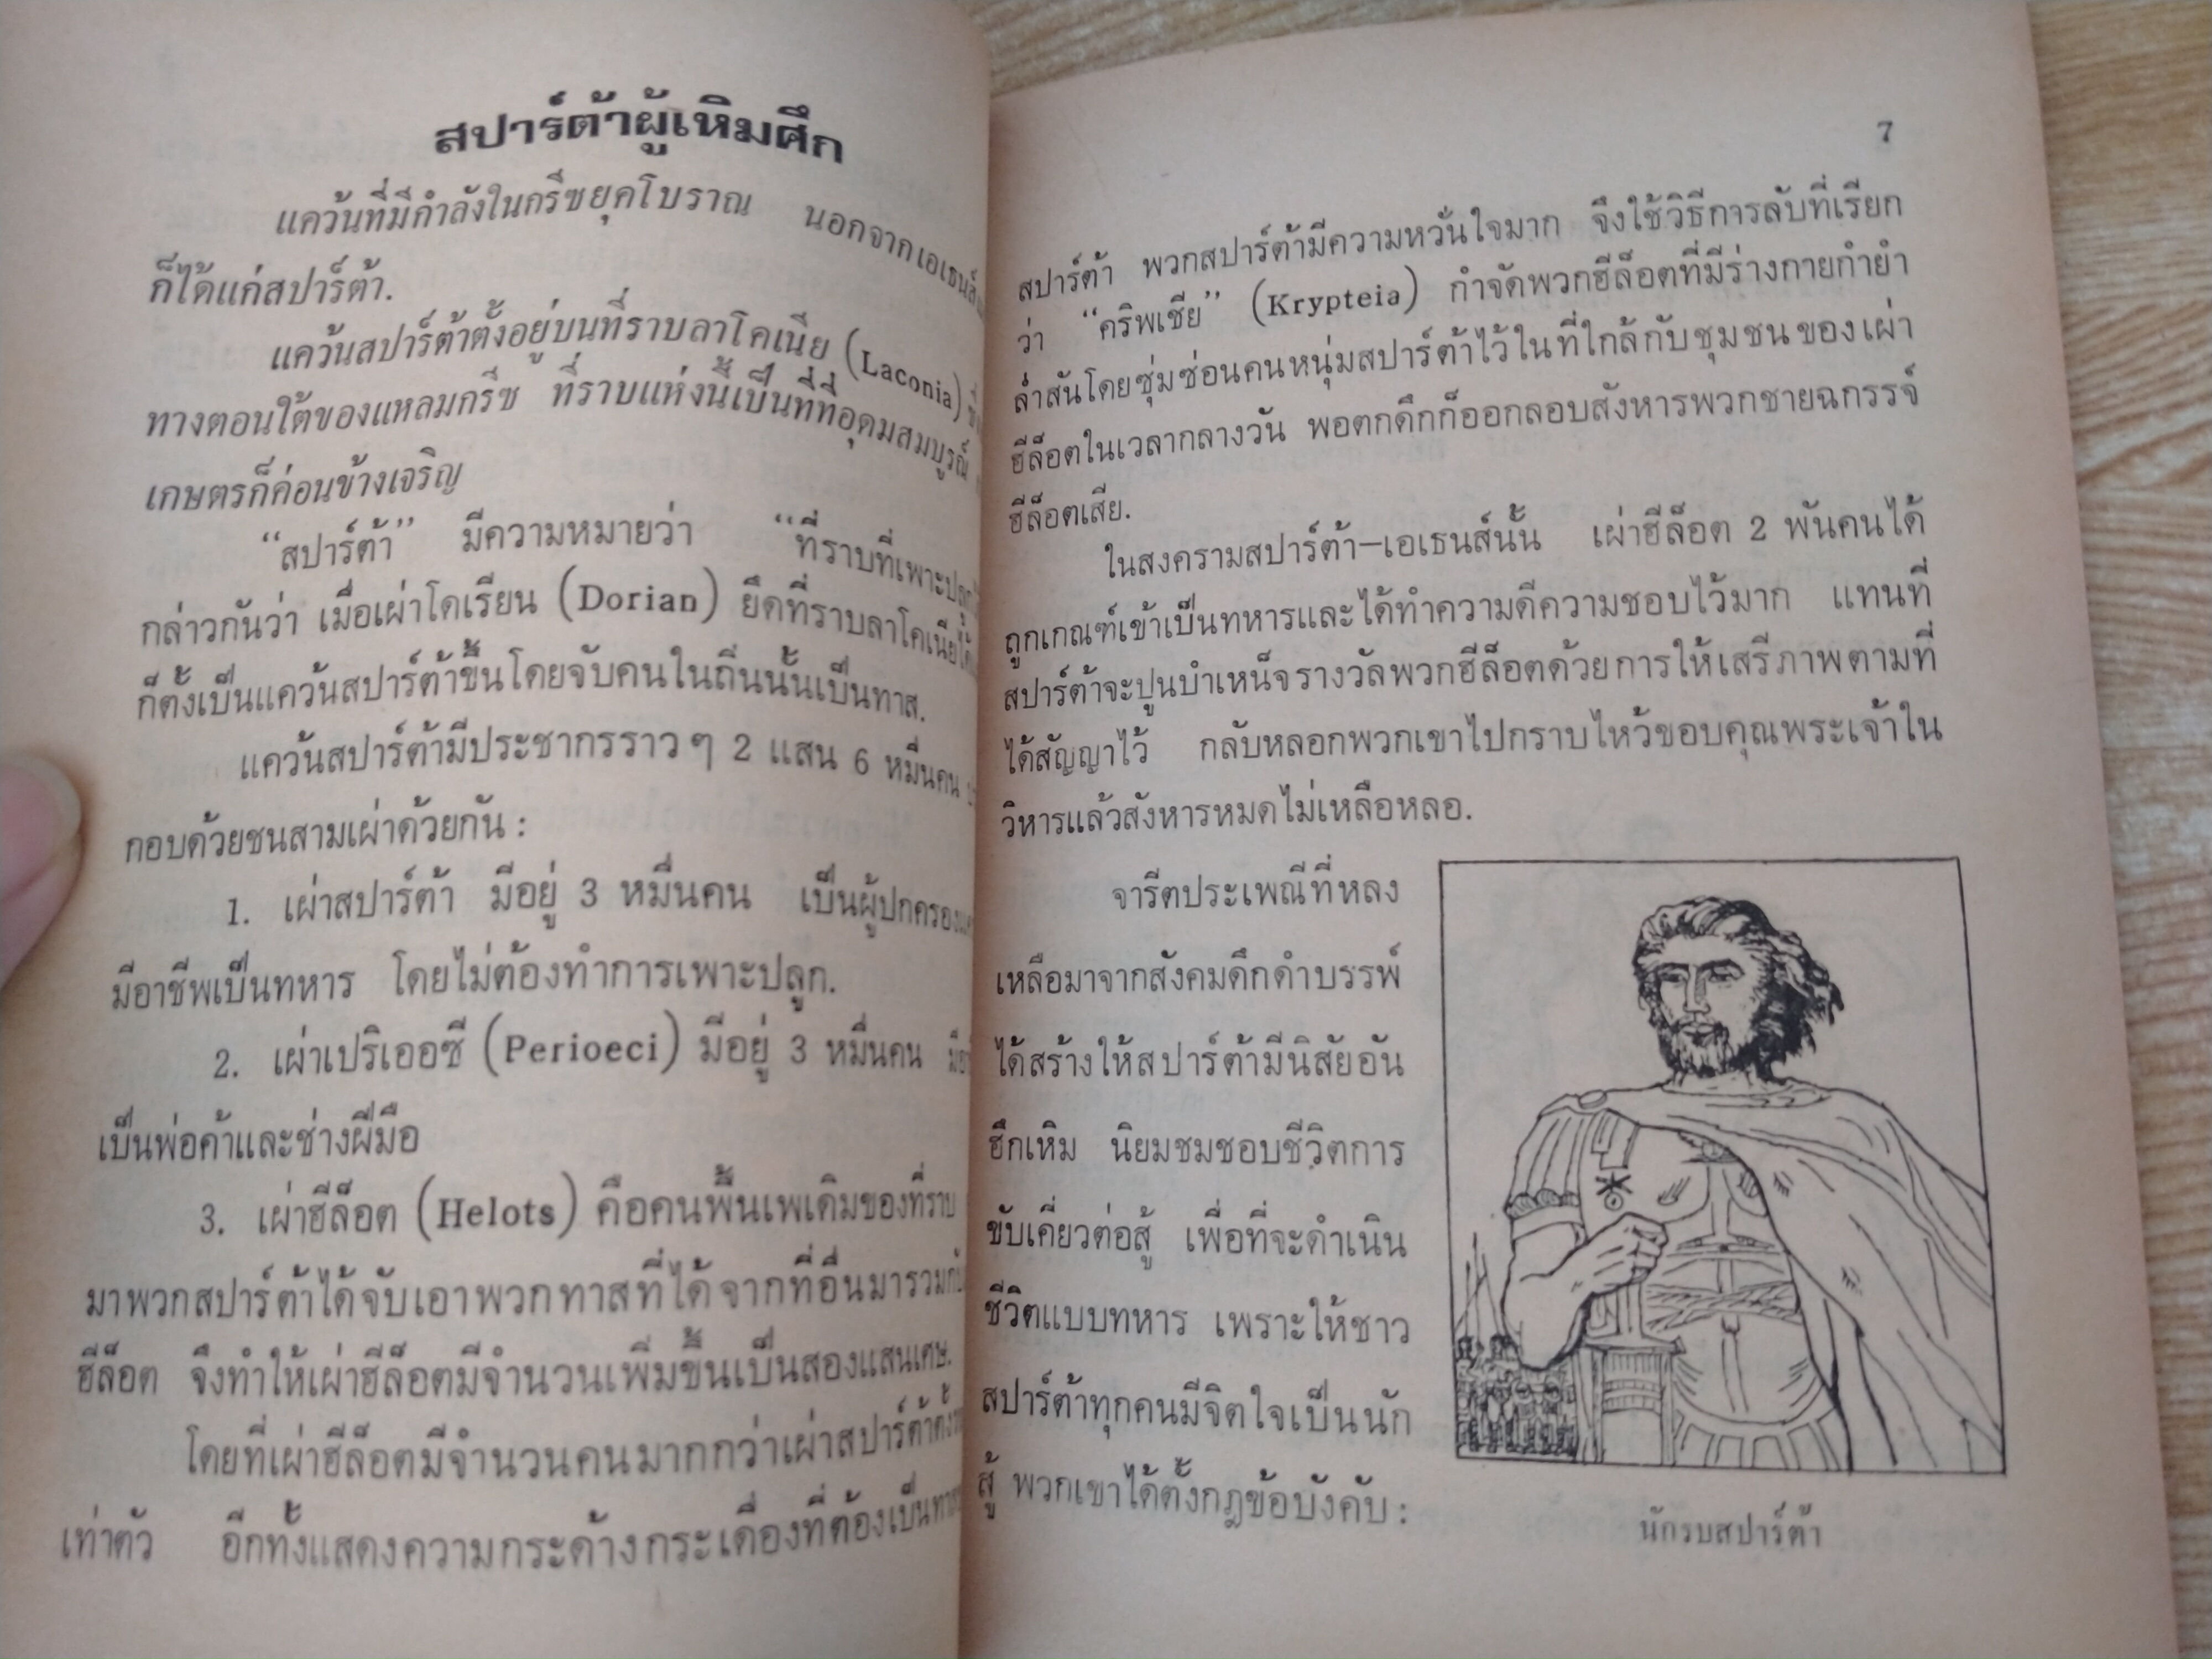 สปาร์ต้าผู้เหิมศึก
แคว้นที่มีกำลังในกรีซยุคโบราณ นอกจากเอเธนส์
ก็ได้แก่สปาร์ต้า.
แคว้นสปาร์ต้าตั้งอยู่บนที่ราบลาโคเนีย (Laconia)
ทางตอนใต้ของแหลมกรีซ ที่ราบแห่งนี้เป็นที่ที่อุดมสมบูรณ์
เกษตรก็ค่อนข้างเจริญ
“สปาร์ต้า” มีความหมายว่า “ที่ราบที่เพาะปลูก
กล่าวกันว่า เมื่อเผ่าโดเรียน (Dorian) ยึดที่ราบลาโคเนียได้
ก็ตั้งเป็นแคว้นสปาร์ต้าขึ้นโดยจับคนในถิ่นนั้นเป็นทาส.
แคว้นสปาร์ต้ามีประชากรราว ๆ 2 แสน 6 หมื่นคน
กอบด้วยชนสามเผ่าด้วยกัน :
1. เผ่าสปาร์ต้า มีอยู่ 3 หมื่นคน เป็นผู้ปกครอง
มีอาชีพเป็นทหาร โดยไม่ต้องทำการเพาะปลูก.
2. เผ่าเปริเออซี (Perioeci) มีอยู่ 3 หมื่นคน
เป็นพ่อค้าและช่างฝีมือ
3. เผ่าฮีล็อต (Helots) คือคนพื้นเพเดิมของที่ราบ
มาพวกสปาร์ต้าได้จับเอาพวกทาสที่ได้จากที่อื่นมารวมกับ
ฮีล็อต จึงทำให้เผ่าฮีล็อตมีจำนวนเพิ่มขึ้นเป็นสองแสนเศษ.
โดยที่เผ่าฮีล็อตมีจำนวนคนมากกว่าเผ่าสปาร์ต้าตั้ง
เท่าตัว อีกทั้งแสดงความกระด้างกระเดื่องที่ต้องเป็น
7
สปาร์ต้า พวกสปาร์ต้ามีความหวั่นใจมาก จึงใช้วิธีการลับที่เรียก
ว่า “คริพเชีย” (Krypteia) กำจัดพวกฮีล็อตที่มีร่างกายกำยำ
ล่ำสันโดยซุ่มซ่อนคนหนุ่มสปาร์ต้าไว้ในที่ใกล้กับชุมชนของเผ่า
ฮีล็อตในเวลากลางวัน พอตกดึกก็ออกลอบสังหารพวกชายฉกรรจ์
ฮีล็อตเสีย.
ในสงครามสปาร์ต้า–เอเธนส์นั้น เผ่าฮีล็อต 2 พันคนได้
ถูกเกณฑ์เข้าเป็นทหารและได้ทำความดีความชอบไว้มาก แทนที่
สปาร์ต้าจะปูนบำเหน็จรางวัลพวกฮีล็อตด้วยการให้เสรีภาพตามที่
ได้สัญญาไว้ กลับหลอกพวกเขาไปกราบไหว้ขอบคุณพระเจ้าใน
วิหารแล้วสังหารหมดไม่เหลือหลอ.
จารีตประเพณีที่หลง
เหลือมาจากสังคมดึกดำบรรพ์
ได้สร้างให้สปาร์ต้ามีนิสัยอัน
ฮึกเหิม นิยมชมชอบชีวิตการ
ขับเคี่ยวต่อสู้ เพื่อที่จะดำเนิน
ชีวิตแบบทหาร เพราะให้ชาว
สปาร์ต้าทุกคนมีจิตใจเป็นนัก
สู้ พวกเขาได้ตั้งกฎข้อบังคับ :
นักรบสปาร์ต้า